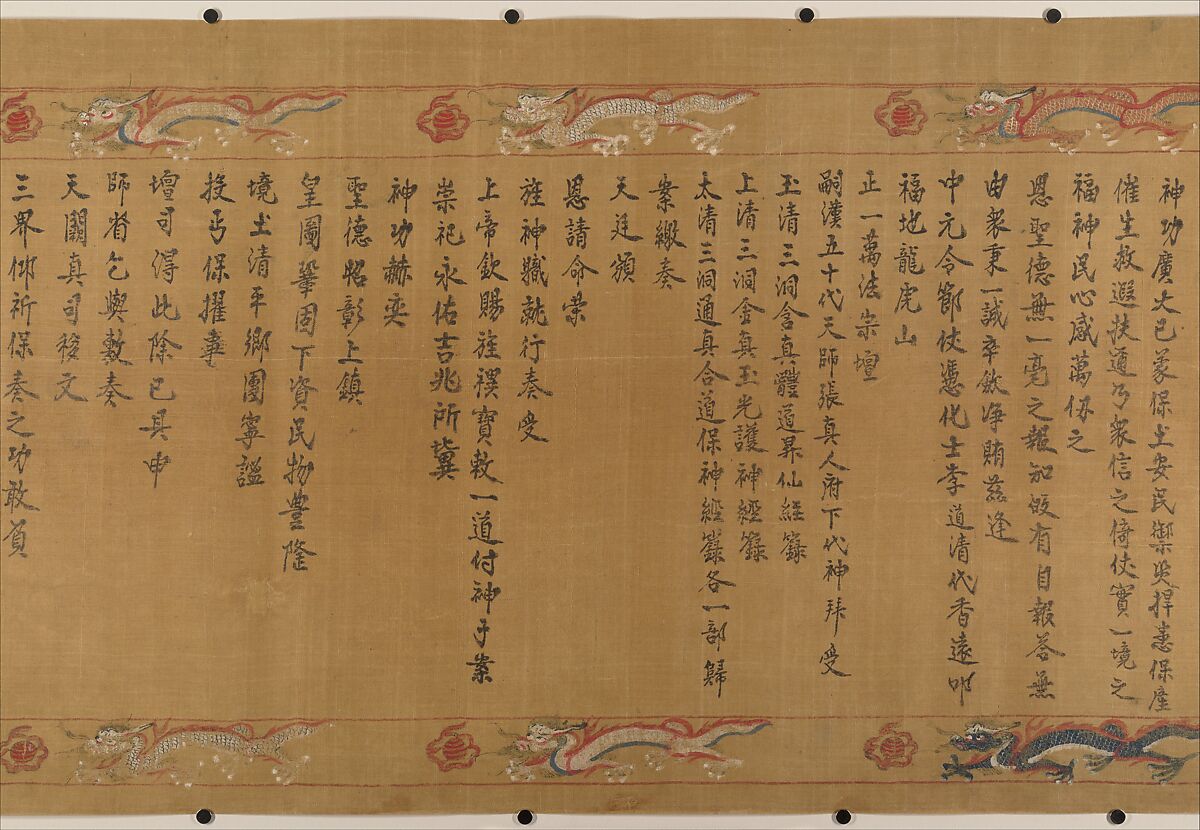 神功廣大已蒙保土安民禦災捍患保產
催生救遐扶適乃眾信之倚仗實一境之
福神民心感萬仭之
恩聖德無一毫之報知啟有目報答無
由衆秉一誠卒歛净賄茲逢
中元令節伏憑化士李道清代香遠叩
福地龍虎山
正一萬法宗壇
嗣漢五十代天師張真人府下代神拜受
玉清三洞含真體道昇仙經籙
上清三洞金真玉光護神經籙
太清三洞通真合道保神經籙各一部歸
案繳奏
天廷頒
恩請命榮
旌神職就行奏受
上帝欽賜旌襈寶敕一道付神予案
崇祀永佑吉兆所冀
神功赫奕
聖德昭彰上鎮
皇圖鞏固下資民物豊隆
境土清平鄉團寧謐
投丐保擢事
壇司淂此除已具申
師省乞與敷奏
天闕真司移文
三界仰祈保奏之功敢負